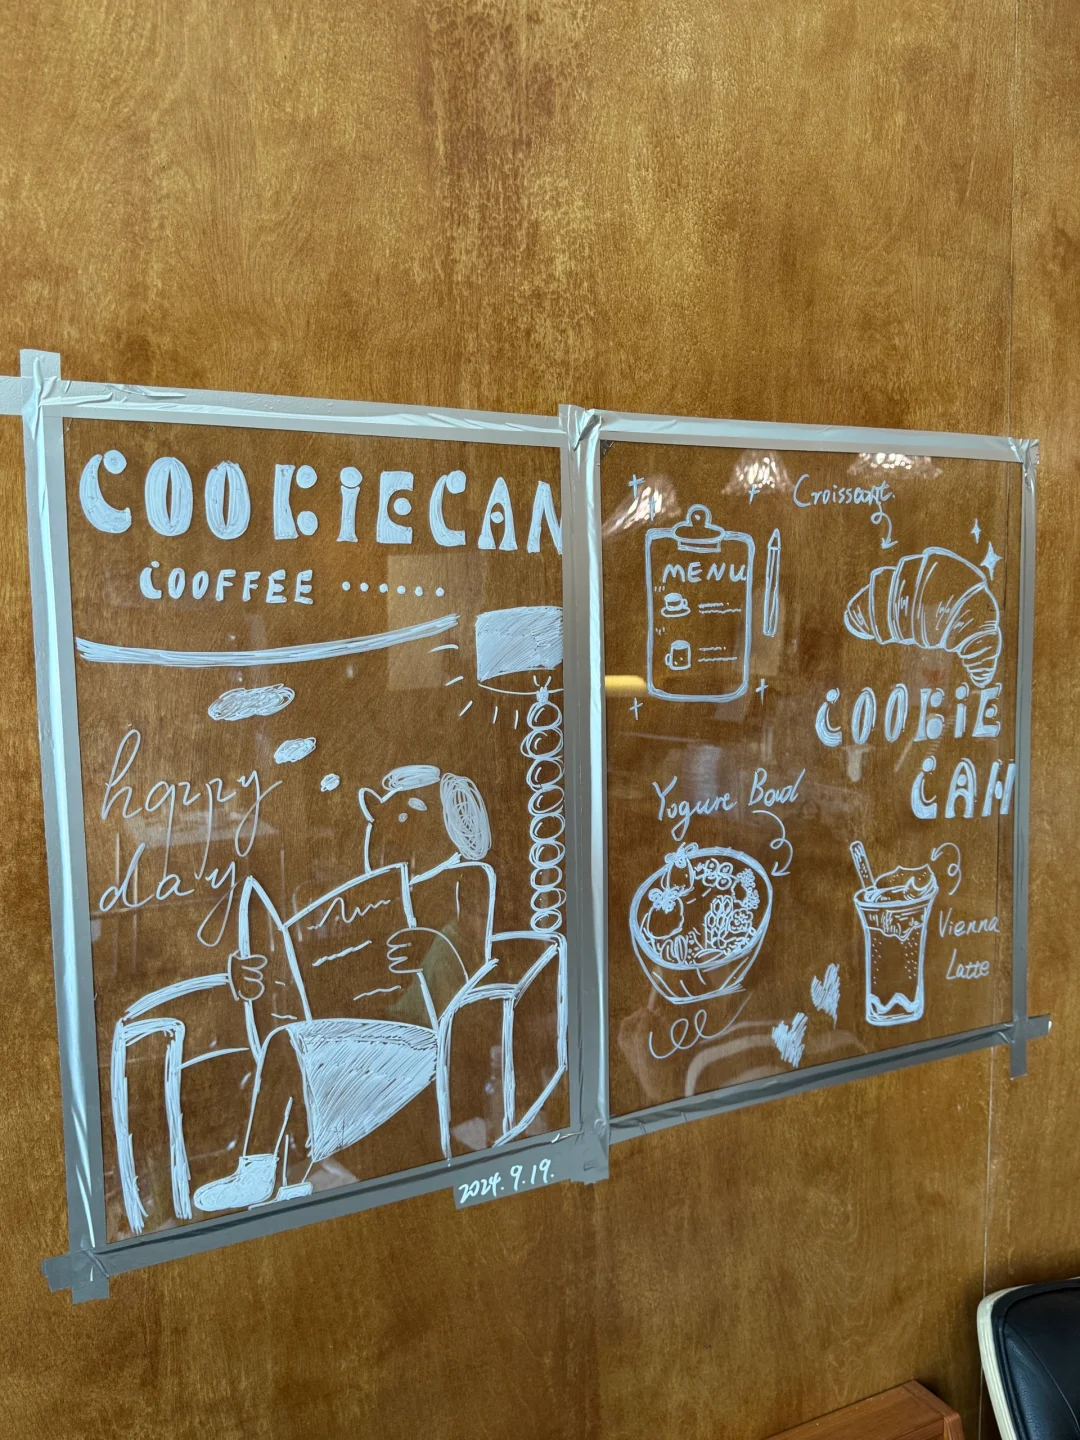 COOKIECAN
COOFFEE ......
happy
day
2024.9.19.
Croissant.
MENU
COOKIE
CAN
Yogure Bowl
Vienna
Latte